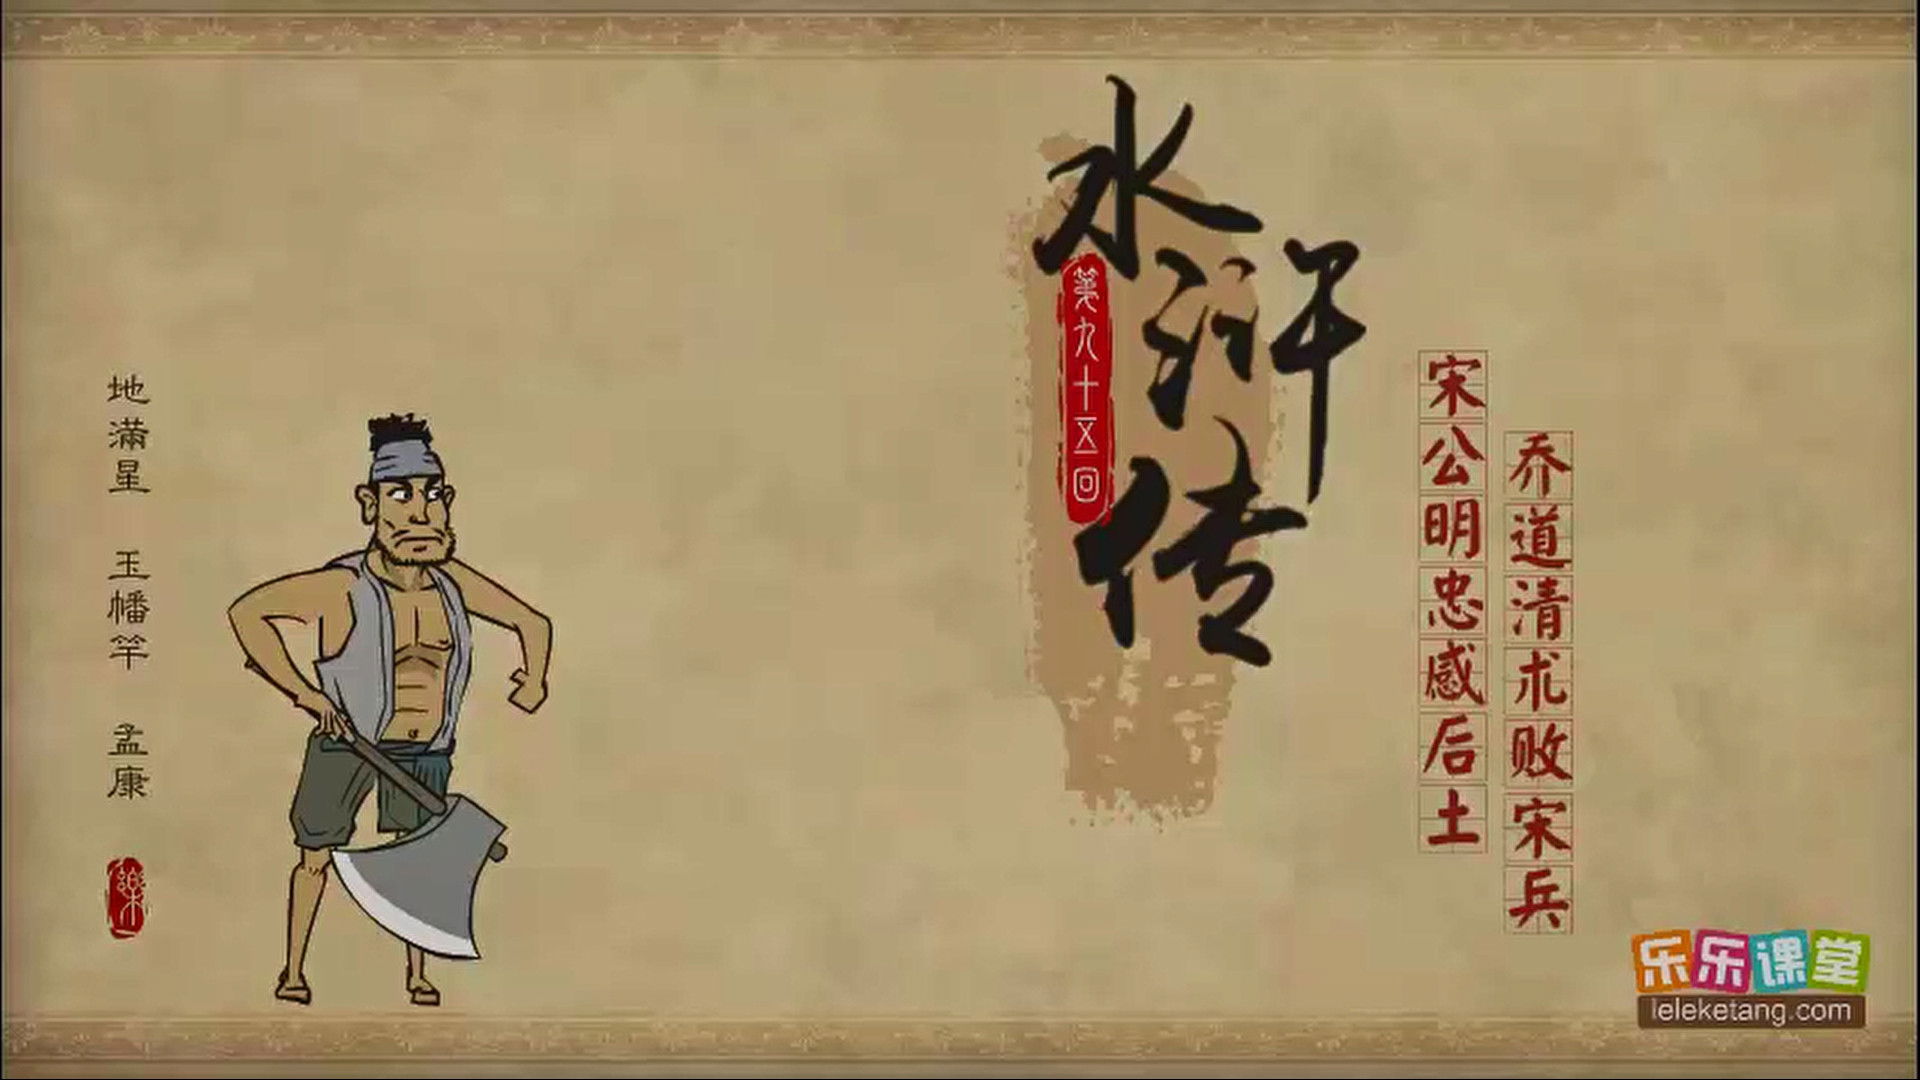 水浒传
第九十五回
宋公明忠感后土
乔道清术败宋兵
地满星 玉幡竿 孟康
樂
乐乐课堂
leleketang.com